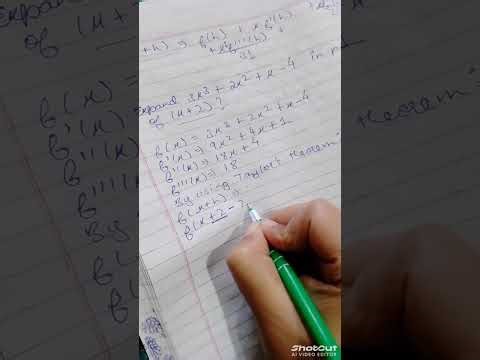 Expand
of (x+2)
+h) ⇒ f(h) + x f'(h)
+ x³f'''(h)
3!
Expand 3x³ + 2x² + x - 4 in
of (x+2)?
f(x) = 3x³ + 2x² + x - 4
f'(x) ⇒ 9x² + 4x + 1
f''(x) ⇒ 18x + 4
f'''(x) ⇒ 18
By using Taylor's theorem
f(x+h) =
f(x+2-2
theorem
f(x) =
f'(x) =
f''(x)
f'''(x)
By
f(
f(
f(
ShotCut
AI VIDEO EDITOR